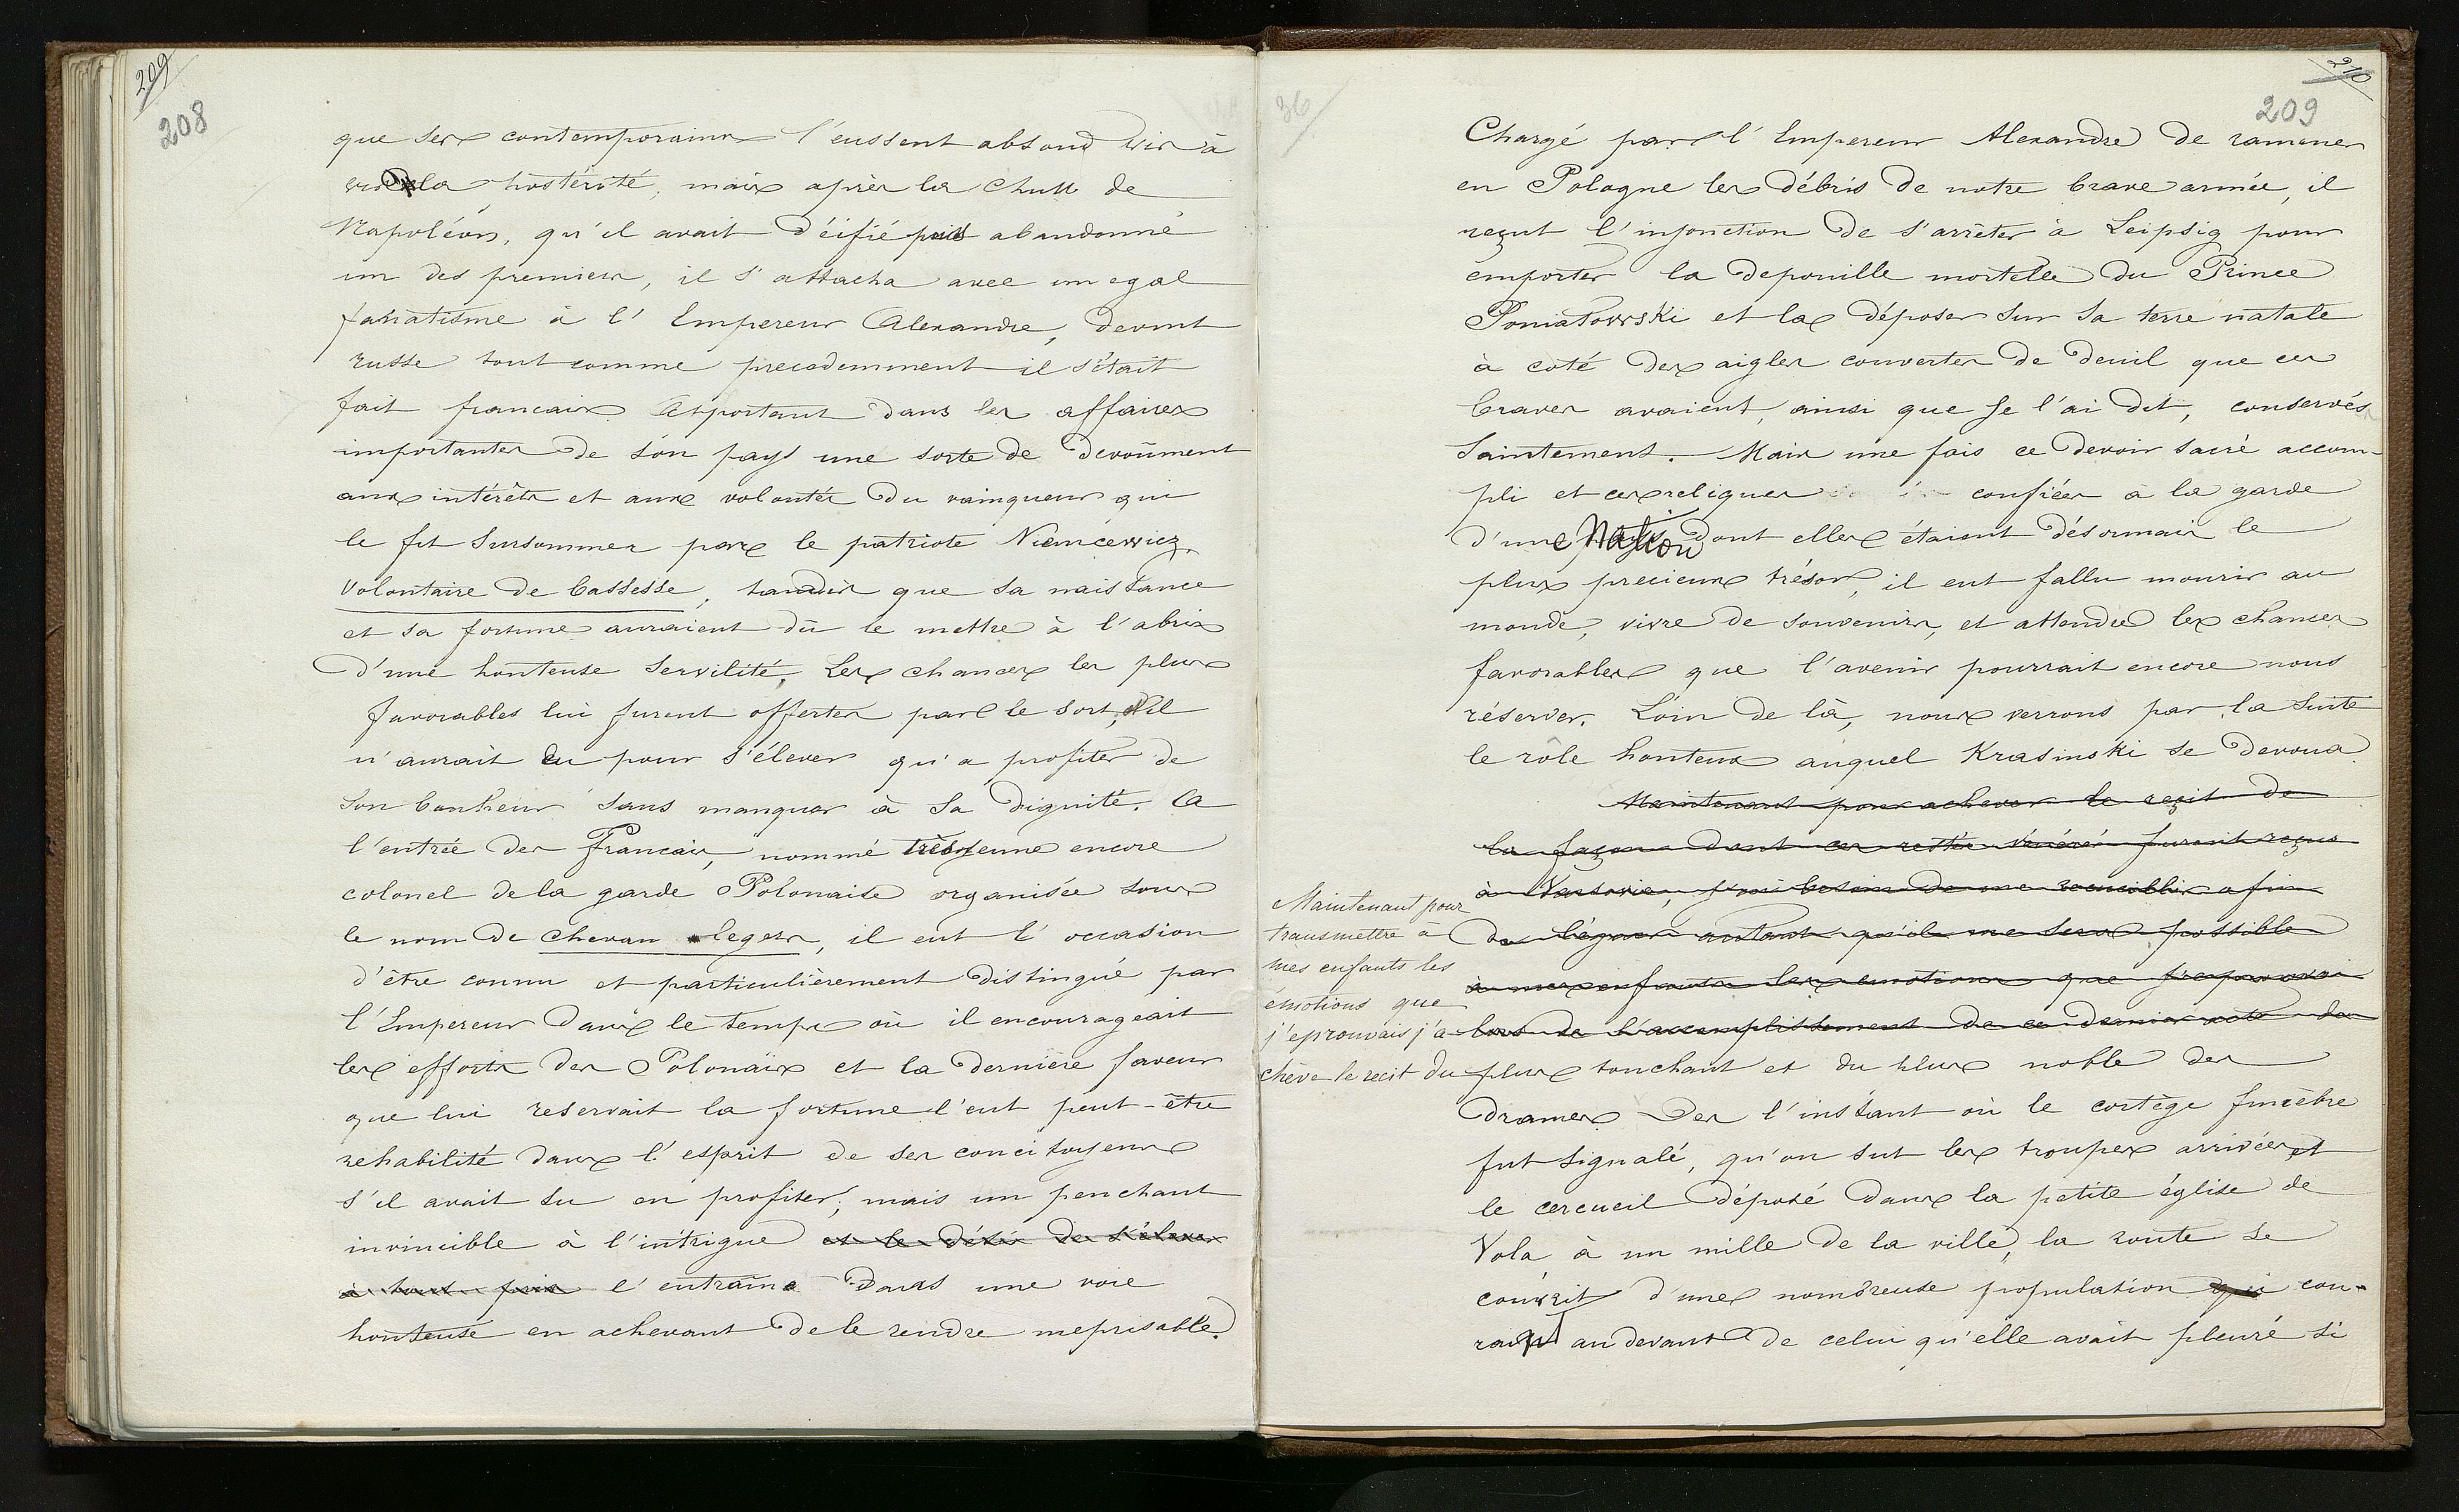 209
208
que ses contemporains l'eussent absoud vis à
vis de la postérité, mais après la chute de
Napoléon, qu'il avait déifié puis abandonné
un des premiers, il s'attacha avec un egal
fanatisme à l'Empereur Alexandre, devint
russe tout comme precedemment il s'était
fait francais apportant dans les affaires
importantes de son pays une sorte de devoûment
aux intérêts et aux volontés du vainqueur qui
le fit surnommer par le patriote Niemcéwicz
volontaire de bassesse, tandis que sa naissance
et sa fortune auraient dû le mettre à l'abris
d'une honteuse servilité. Les chances les plus
favorables lui furent offertes par le sort, il
n'aurait eu pour s'élever qu'a profiter de
son bonheur sans manquer à sa dignité. A
l'entrée des Francais, nommé très jeune encore
colonel de la garde Polonaise organisée sous
le nom de chevau legers, il eut l'occasion
d'être connu et particulièrement distingué par
l'Empereur dans le temps où il encourageait
les efforts des Polonais et la derniere faveur
que lui reservait la fortune l'eut peut-être
rehabilité dans l'esprit de ses concitoyens
s'il avait su en profiter; mais un penchant
invincible à l'intrigue et le désir de s'élever
à tout prix l'entraîna dans une voie
honteuse en achevant de le rendre meprisable.
36
210
209
Chargé par l'Empereur Alexandre de ramener
en Pologne les débris de notre brave armée, il
reçut l'injonction de s'arrêter à Leipsig pour
emporter la depouille mortelle du Prince
Poniatowski et la déposer sur sa terre natale
à coté des aigles couvertes de deuil que ces
braves avaient, ainsi que je l'ai dit, conservés
saintement. Mais une fois ce devoir sacré accom-
pli et ces reliques confiées à la garde
d'une Nation dont elles étaient désormais le
plus precieux trésor, il eut fallu mourir au
monde, vivre de souvenirs, et attendre les chances
favorables que l'avenir pourrait encore nous
réserver. Loin de là, nous verrons par la suite
le rôle honteux auquel Krasinski se devoua
Maintenant pour achever le reçit de
la façon dont ces restes vénérés furent reçus
à Varsovie, j'ai besoin de me recueillir afin
de léguer autant qu'il me sera possible
à mes enfants les emotions que j'eprouvai
lors de l'accomplissement de ce dernier acte du
Maintenant pour
transmettre à
mes enfants les
émotions que
j'eprouvais j'a-
chève le recit du plus touchant et du plus noble des
drames Des l'instant où le cortège funèbre
fut signalé, qu'on sut les troupes arrivées et
le cercueil déposé dans la petite église de
Vola, à un mille de la ville, la route se
couvrit d'une nombreuse population qui cou-
rait au devant de celui qu'elle avait pleuré si